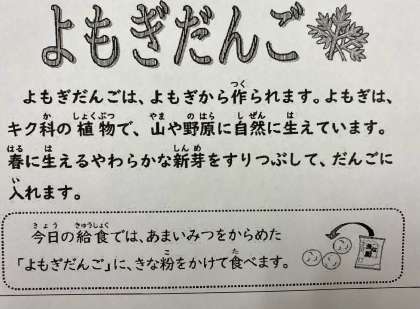 よもぎだんご
よもぎだんごは、よもぎから作られます。よもぎは、
キク科の植物で、山や野原に自然に生えています。
春に生えるやわらかな新芽をすりつぶして、だんごに
入れます。
今日の給食では、あまいみつをからめた
「よもぎだんご」に、きな粉をかけて食べます。